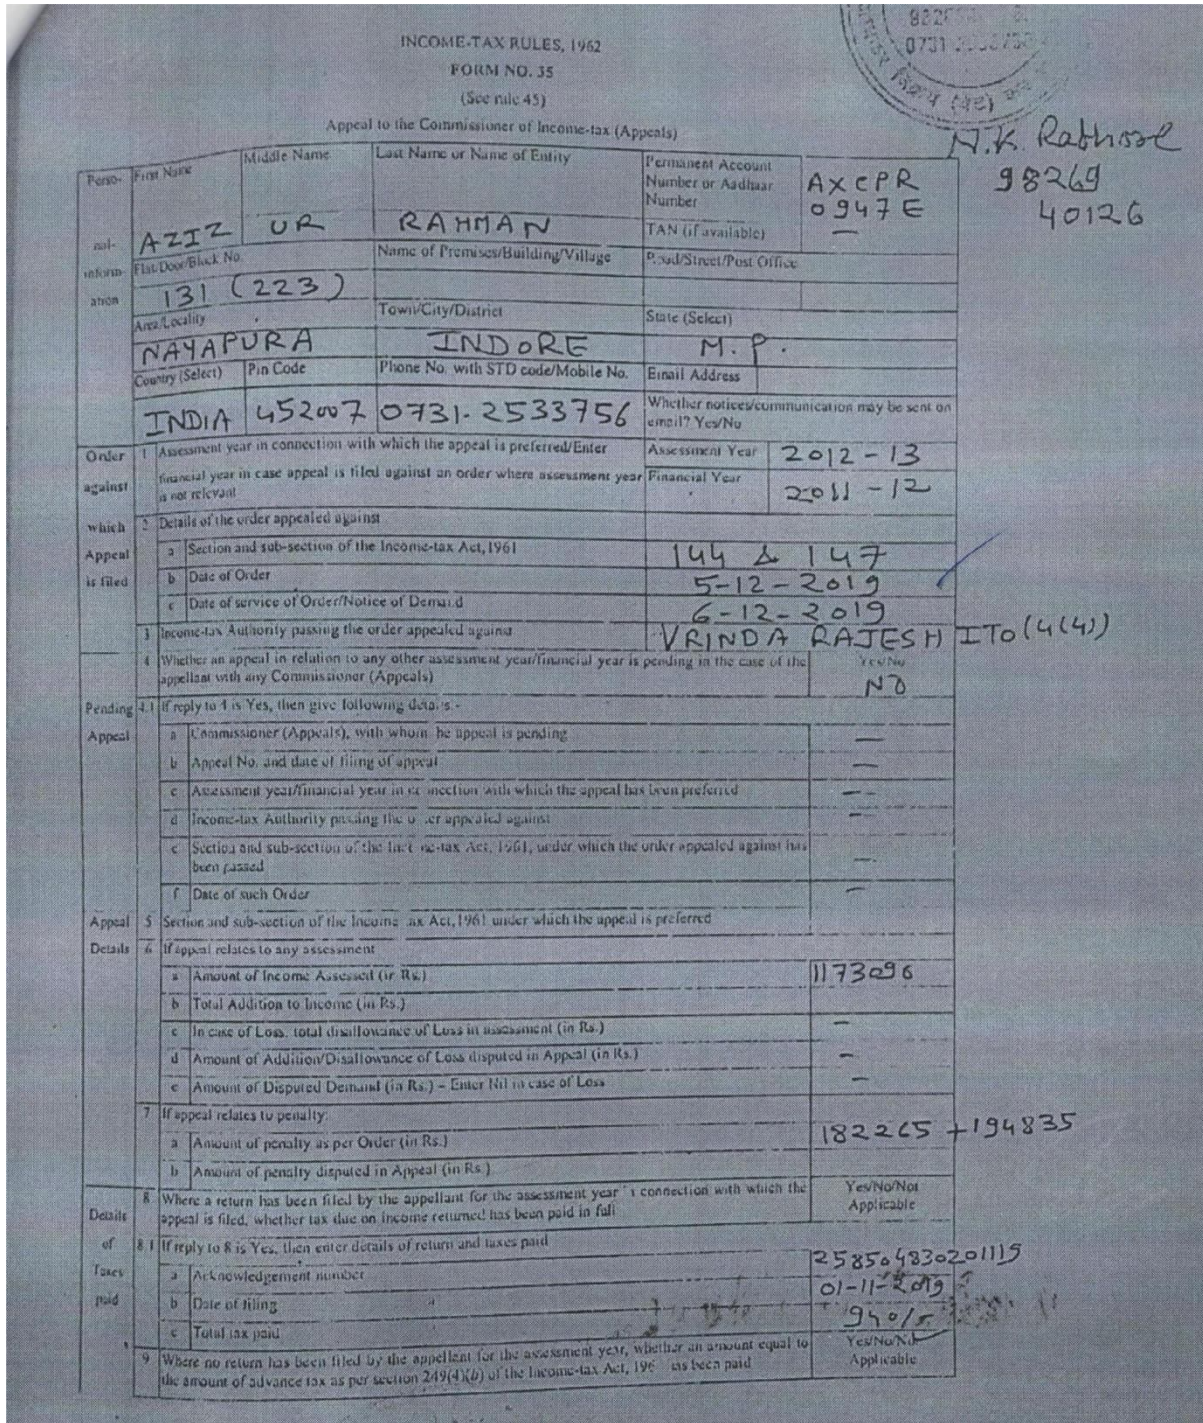 0731
INCOME-TAX RULES, 1962
FORM NO. 35
(See rule 45)
Appeal to the Commissioner of Income-tax (Appeals)
N.K. Rathore
98269
40126
Perso-
nal-
inform-
ation
First Name
Middle Name
Last Name or Name of Entity
Permanent Account Number or Aadhaar Number
AXCPR
0947E
AZIZ UR RAHMAN
TAN (if available) —
Flat/Door/Block No.
Name of Premises/Building/Village
Road/Street/Post Office
131 (223)
Area/Locality
Town/City/District
State (Select)
NAYAPURA INDORE M.P.
Country (Select) Pin Code Phone No. with STD code/Mobile No. Email Address
INDIA 452007 0731-2533756
Whether notices/communication may be sent on email? Yes/No
Order against which Appeal is filed
1 Assessment year in connection with which the appeal is preferred/Enter
financial year in case appeal is filed against an order where assessment year
is not relevant
Assessment Year 2012-13
Financial Year 2011-12
2 Details of the order appealed against
a Section and sub-section of the Income-tax Act, 1961 144 & 147
b Date of Order 5-12-2019
c Date of service of Order/Notice of Demand 6-12-2019
3 Income-tax Authority passing the order appealed against VRINDA RAJESH ITO (4(4))
4 Whether an appeal in relation to any other assessment year/financial year is pending in the case of the
appellant with any Commissioner (Appeals)
Yes/No
NO
Pending Appeal
4.1 If reply to 4 is Yes, then give following details:-
a Commissioner (Appeals), with whom the appeal is pending —
b Appeal No. and date of filing of appeal —
c Assessment year/financial year in connection with which the appeal has been preferred —
d Income-tax Authority passing the order appealed against —
e Section and sub-section of the Income-tax Act, 1961, under which the order appealed against has
been passed —
f Date of such Order —
Appeal Details
5 Section and sub-section of the Income Tax Act, 1961 under which the appeal is preferred
6 If appeal relates to any assessment
a Amount of Income Assessed (in Rs.) 1173096
b Total Addition to Income (in Rs.)
c In case of Loss, total disallowance of Loss in assessment (in Rs.) —
d Amount of Addition/Disallowance of Loss disputed in Appeal (in Rs.) —
e Amount of Disputed Demand (in Rs.) – Enter Nil in case of Loss —
7 If appeal relates to penalty:
a Amount of penalty as per Order (in Rs.) 182265 + 194835
b Amount of penalty disputed in Appeal (in Rs.)
Details of Taxes paid
8 Where a return has been filed by the appellant for the assessment year in connection with which the
appeal is filed, whether tax due on income returned has been paid in full
Yes/No/Not Applicable
8.1 If reply to 8 is Yes, then enter details of return and taxes paid
a Acknowledgement number 258504830201119
b Date of filing 01-11-2019
c Total tax paid 940/-
9 Where no return has been filed by the appellant for the assessment year, whether an amount equal to
the amount of advance tax as per section 249(4)(b) of the Income-tax Act, 196 has been paid
Yes/No/Not Applicable